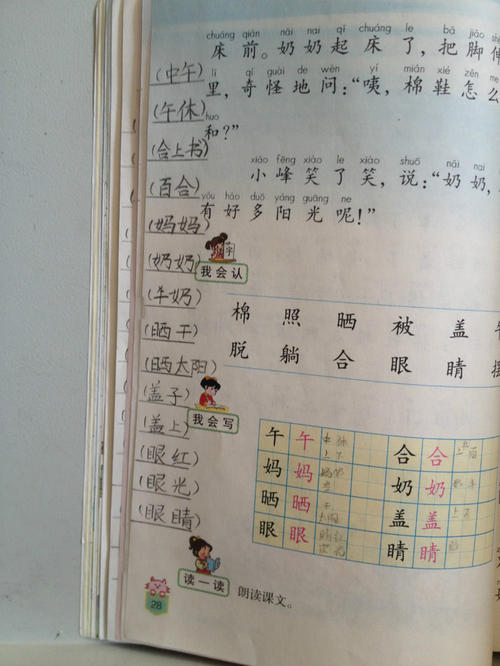 chuáng qián nǎi nai qǐ chuáng le bǎ jiǎo
床前。奶奶起床了,把脚伸
lǐ qí guài de wèn yí mián xié zěn me
里,奇怪地问:“咦,棉鞋怎么
huo
和?”
xiǎo fēng xiào le xiào shuō nǎi nai
小峰笑了笑,说:“奶奶,
yǒu hǎo duō yáng guāng ne
有好多阳光呢!”
(中午)
(午休)
(合上书)
(百合)
(妈妈)
(奶奶)
(牛奶)
(晒干)
(晒太阳)
(盖子)
(盖上)
(眼红)
(眼光)
(眼睛)
字
我会认
棉 照 晒 被 盖
脱 躺 合 眼 睛
我会写
午 午 合 合
妈 妈 奶 奶
晒 晒 盖 盖
眼 眼 睛 睛
读一读 朗读课文。
28